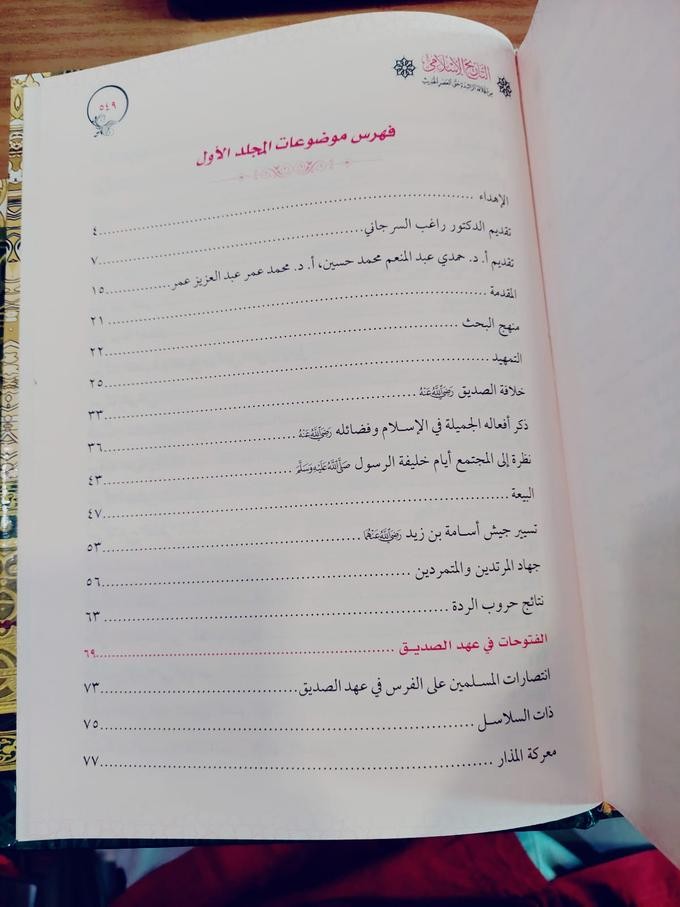 التاريخ الإسلامي
من الخلافة الراشدة حتى العصر الحديث
٥٤٩
فهرس موضوعات المجلد الأول
الإهداء ........ ٤
تقديم الدكتور راغب السرجاني ........ ٧
تقديم أ. د. حمدي عبد المنعم محمد حسين، أ. د. محمد عمر عبد العزيز عمر ........ ١٥
المقدمة ........ ٢١
منهج البحث ........ ٢٢
التمهيد ........ ٢٥
خلافة الصديق رَضِيَ اللَّهُ عَنْهُ ........ ٣٣
ذكر أفعاله الجميلة في الإسلام وفضائله رَضِيَ اللَّهُ عَنْهُ ........ ٣٦
نظرة إلى المجتمع أيام خليفة الرسول صَلَّى اللَّهُ عَلَيْهِ وَسَلَّمَ ........ ٤٣
البيعة ........ ٤٧
تسيير جيش أسامة بن زيد رَضِيَ اللَّهُ عَنْهُمَا ........ ٥٣
جهاد المرتدين والمتمردين ........ ٥٦
نتائج حروب الردة ........ ٦٣
الفتوحات في عهد الصديق ........ ٦٩
انتصارات المسلمين على الفرس في عهد الصديق ........ ٧٣
ذات السلاسل ........ ٧٥
معركة المذار ........ ٧٧